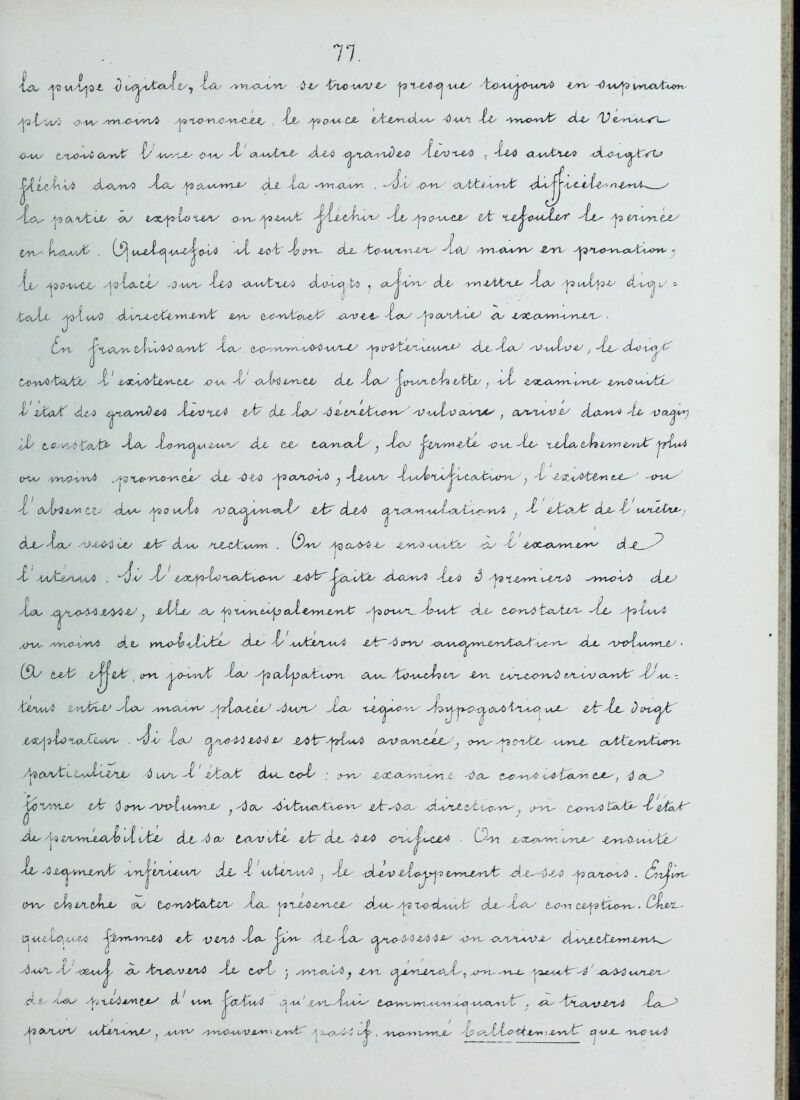 77.
la pulpe digitale, la main se trouve presque toujours en supination
plus ou moins prononcée, le pouce étendu sur le mont de Vénus
ou croisant l'une ou l'autre des grandes lèvres, les autres doigts
fléchis dans la paume de la main. Si on atteint difficilement
la partie à explorer on peut fléchir le pouce et refouler le périnée
en haut. Quelquefois il est bon de tourner la main en pronation;
le pouce placé sur les autres doigts, afin de mettre la pulpe digi=
tale plus directement en contact avec la partie à examiner.
En franchissant la commissure postérieure de la vulve, le doigt
constate l'existence ou l'absence de la fourchette, il examine ensuite
l'état des grandes lèvres et de la sécrétion vulvaire, arrivé dans le vagin
il constate la longueur de ce canal, la fermeté ou le relachement plus
ou moins prononcé de ses parois, leur lubrification, l'existence ou
l'absence du pouls vaginal et des granulations, l'état de l'urètre,
de la vessie et du rectum. On passe ensuite à l'examen de
l'utérus. Si l'exploration est faite dans les 3 premiers mois de
la grossesse, elle a principalement pour but de constater le plus
ou moins de mobilité de l'utérus et son augmentation de volume.
A cet effet, on joint la palpation au toucher en circonscrivant l'u=
térus entre la main placée sur la région hypogastrique et le doigt
explorateur. Si la grossesse est plus avancée, on porte une attention
particulière sur l'état du col: on examine sa consistance, sa
forme et son volume, sa situation et sa direction, on constate l'état
de perméabilité de sa cavité et de ses orifices. On examine ensuite
le segment inférieur de l'utérus, le développement de ses parois. Enfin
on cherche à constater la présence du produit de la conception. Chez
quelques femmes et vers la fin de la grossesse on arrive directement
sur l'œuf à travers le col; mais, en général, on ne peut s'assurer
de la présence d'un fœtus qu'en lui communiquant, à travers la
paroi utérine, un mouvement passif, nommé ballottement que nous